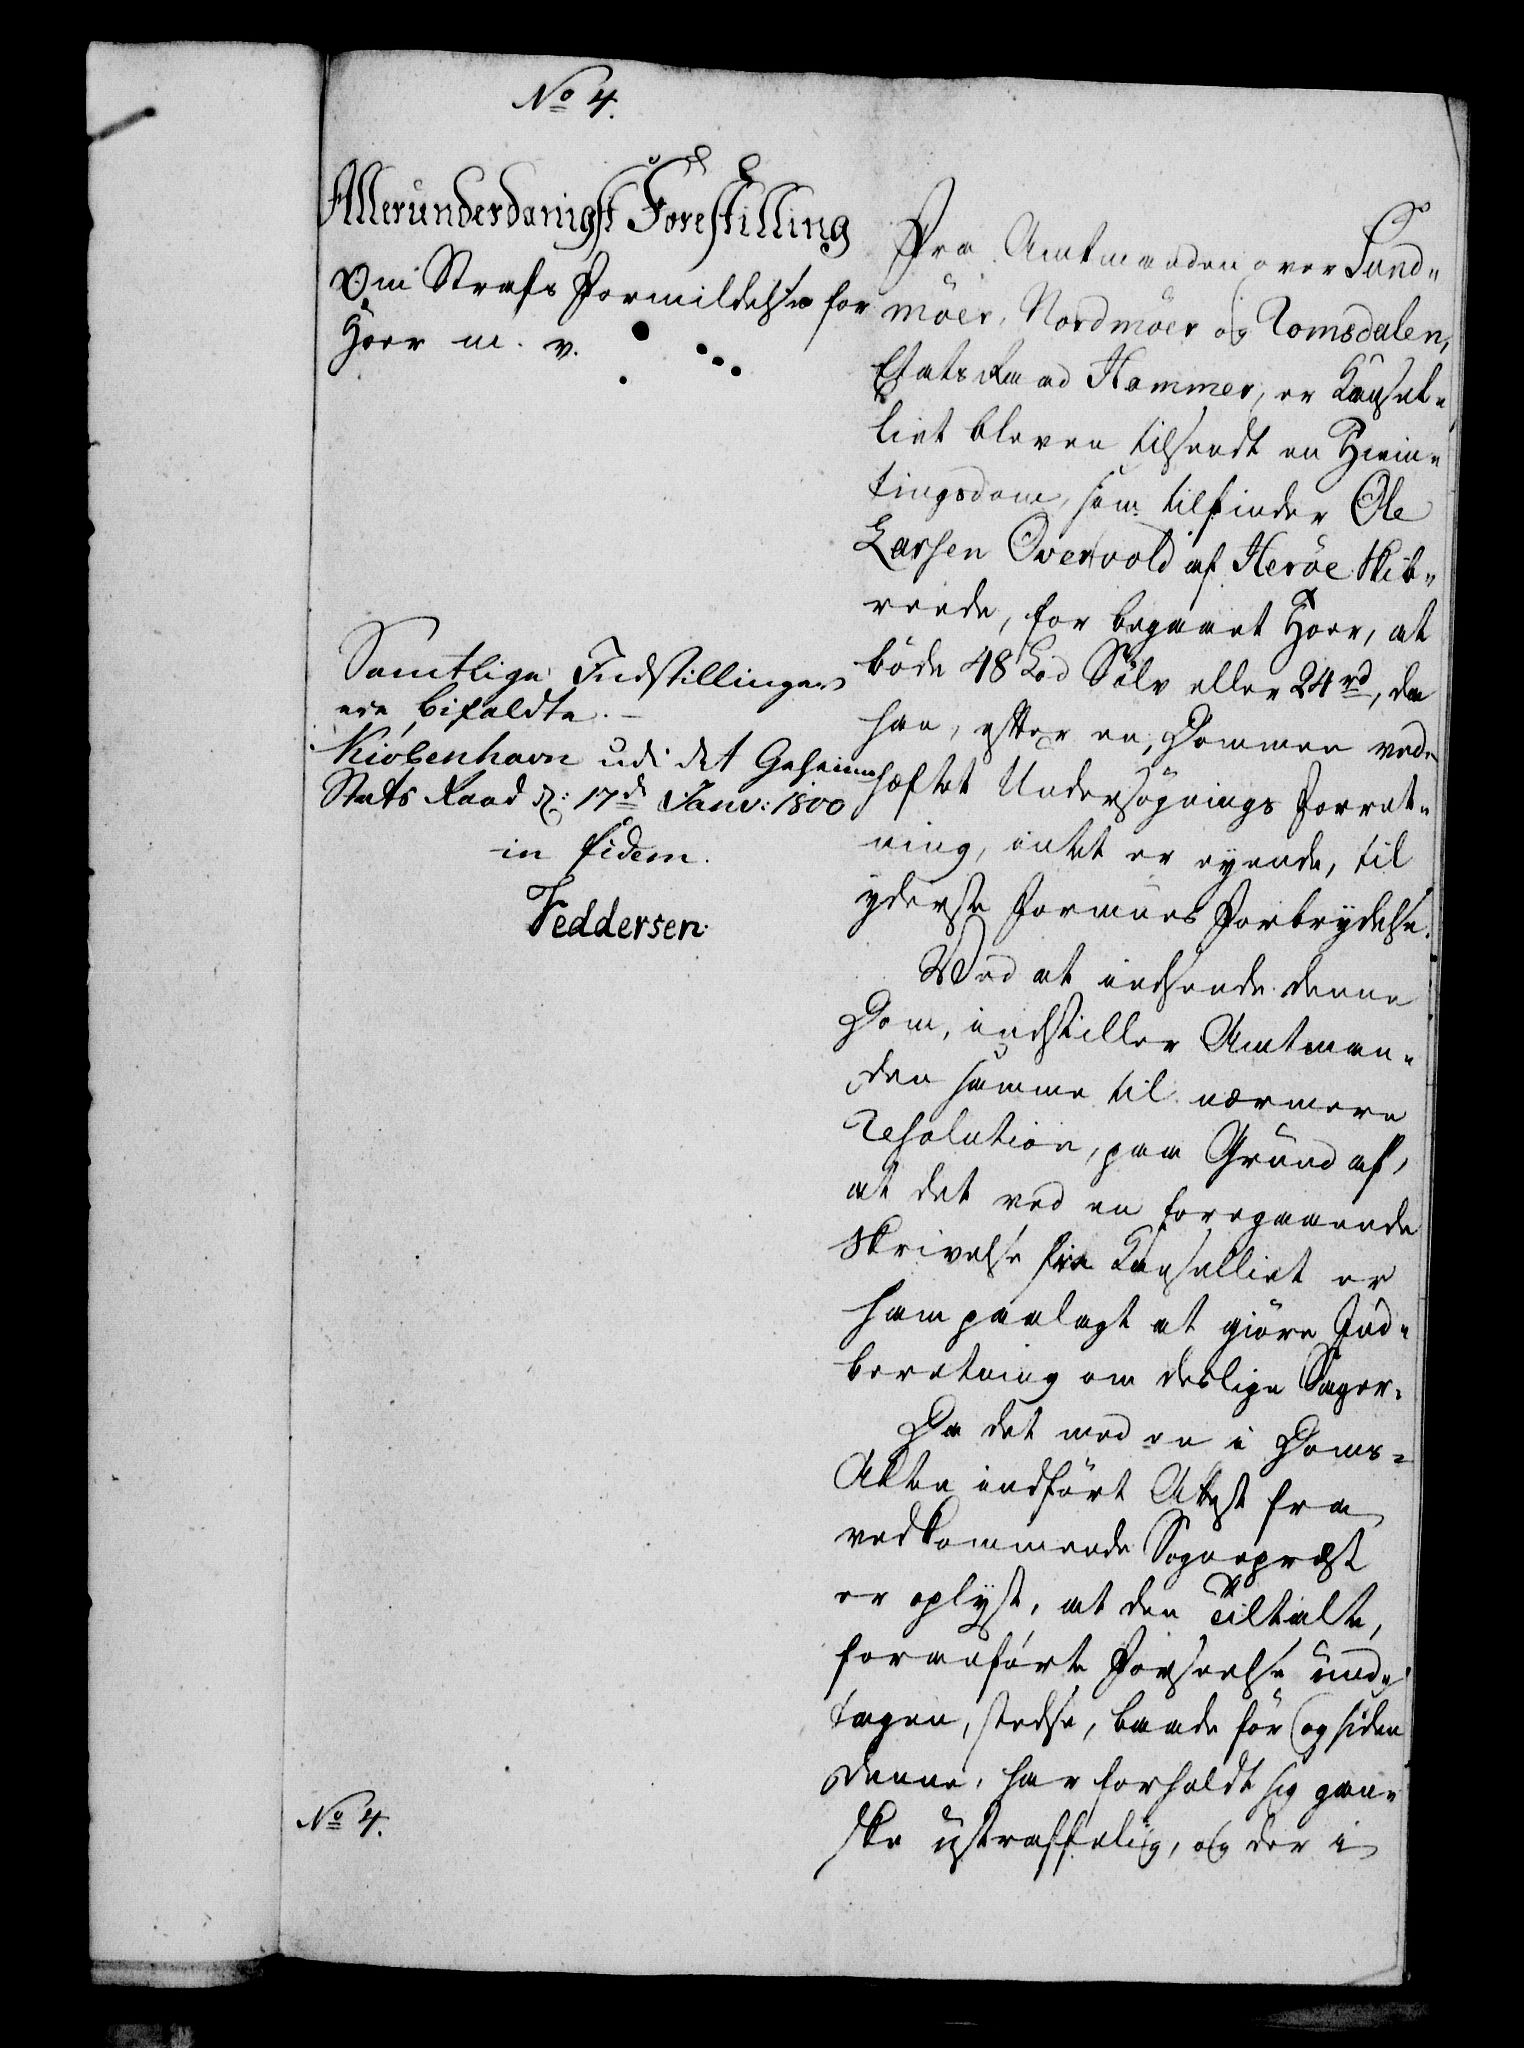 No 4.
Allerunderdanigst Forestilling
Om Strafs Formildelse for
Hoer m. v.
Samtlige Indstillinger
ere bifaldte. –
Kiöbenhavn udi det Geheime
Stats Raad d: 17de Janv: 1800
in fidem.
Feddersen.
No 4.
Fra Amtmanden over Sund-
möer, Nordmöer og Romsdalen,
Etatsraad Hammer, er Kansel-
liet bleven tilsendt en Hiem-
tingsdom, som tilfinder Ole
Larsen Overvold af Heröe Skib-
reede, for begaaet Hoer, at
böde 48 Lod Sölv eller 24 rd, da
han, efter en, Dommen ved-
hæftet Undersögnings Forret-
ning, intet er eyende, til
yderste Formues Forbrydelse.
Ved at indsende denne
Dom, indstiller Amtman-
den samme til nærmere
Resolution, paa Grund af,
at det ved en foregaaende
Skrivelse fra Kanselliet er
ham paalagt at giöre Ind-
beretning om deslige Sager.
Da det med en i Doms-
Akten indfört Attest fra
vedkommende Sognepræst
er oplyst, at den Tiltalte,
foranförte Forseelse und-
tagen, stedse, baade för og siden
denne, har forholdt sig gan-
ske ustraffelig, og der i